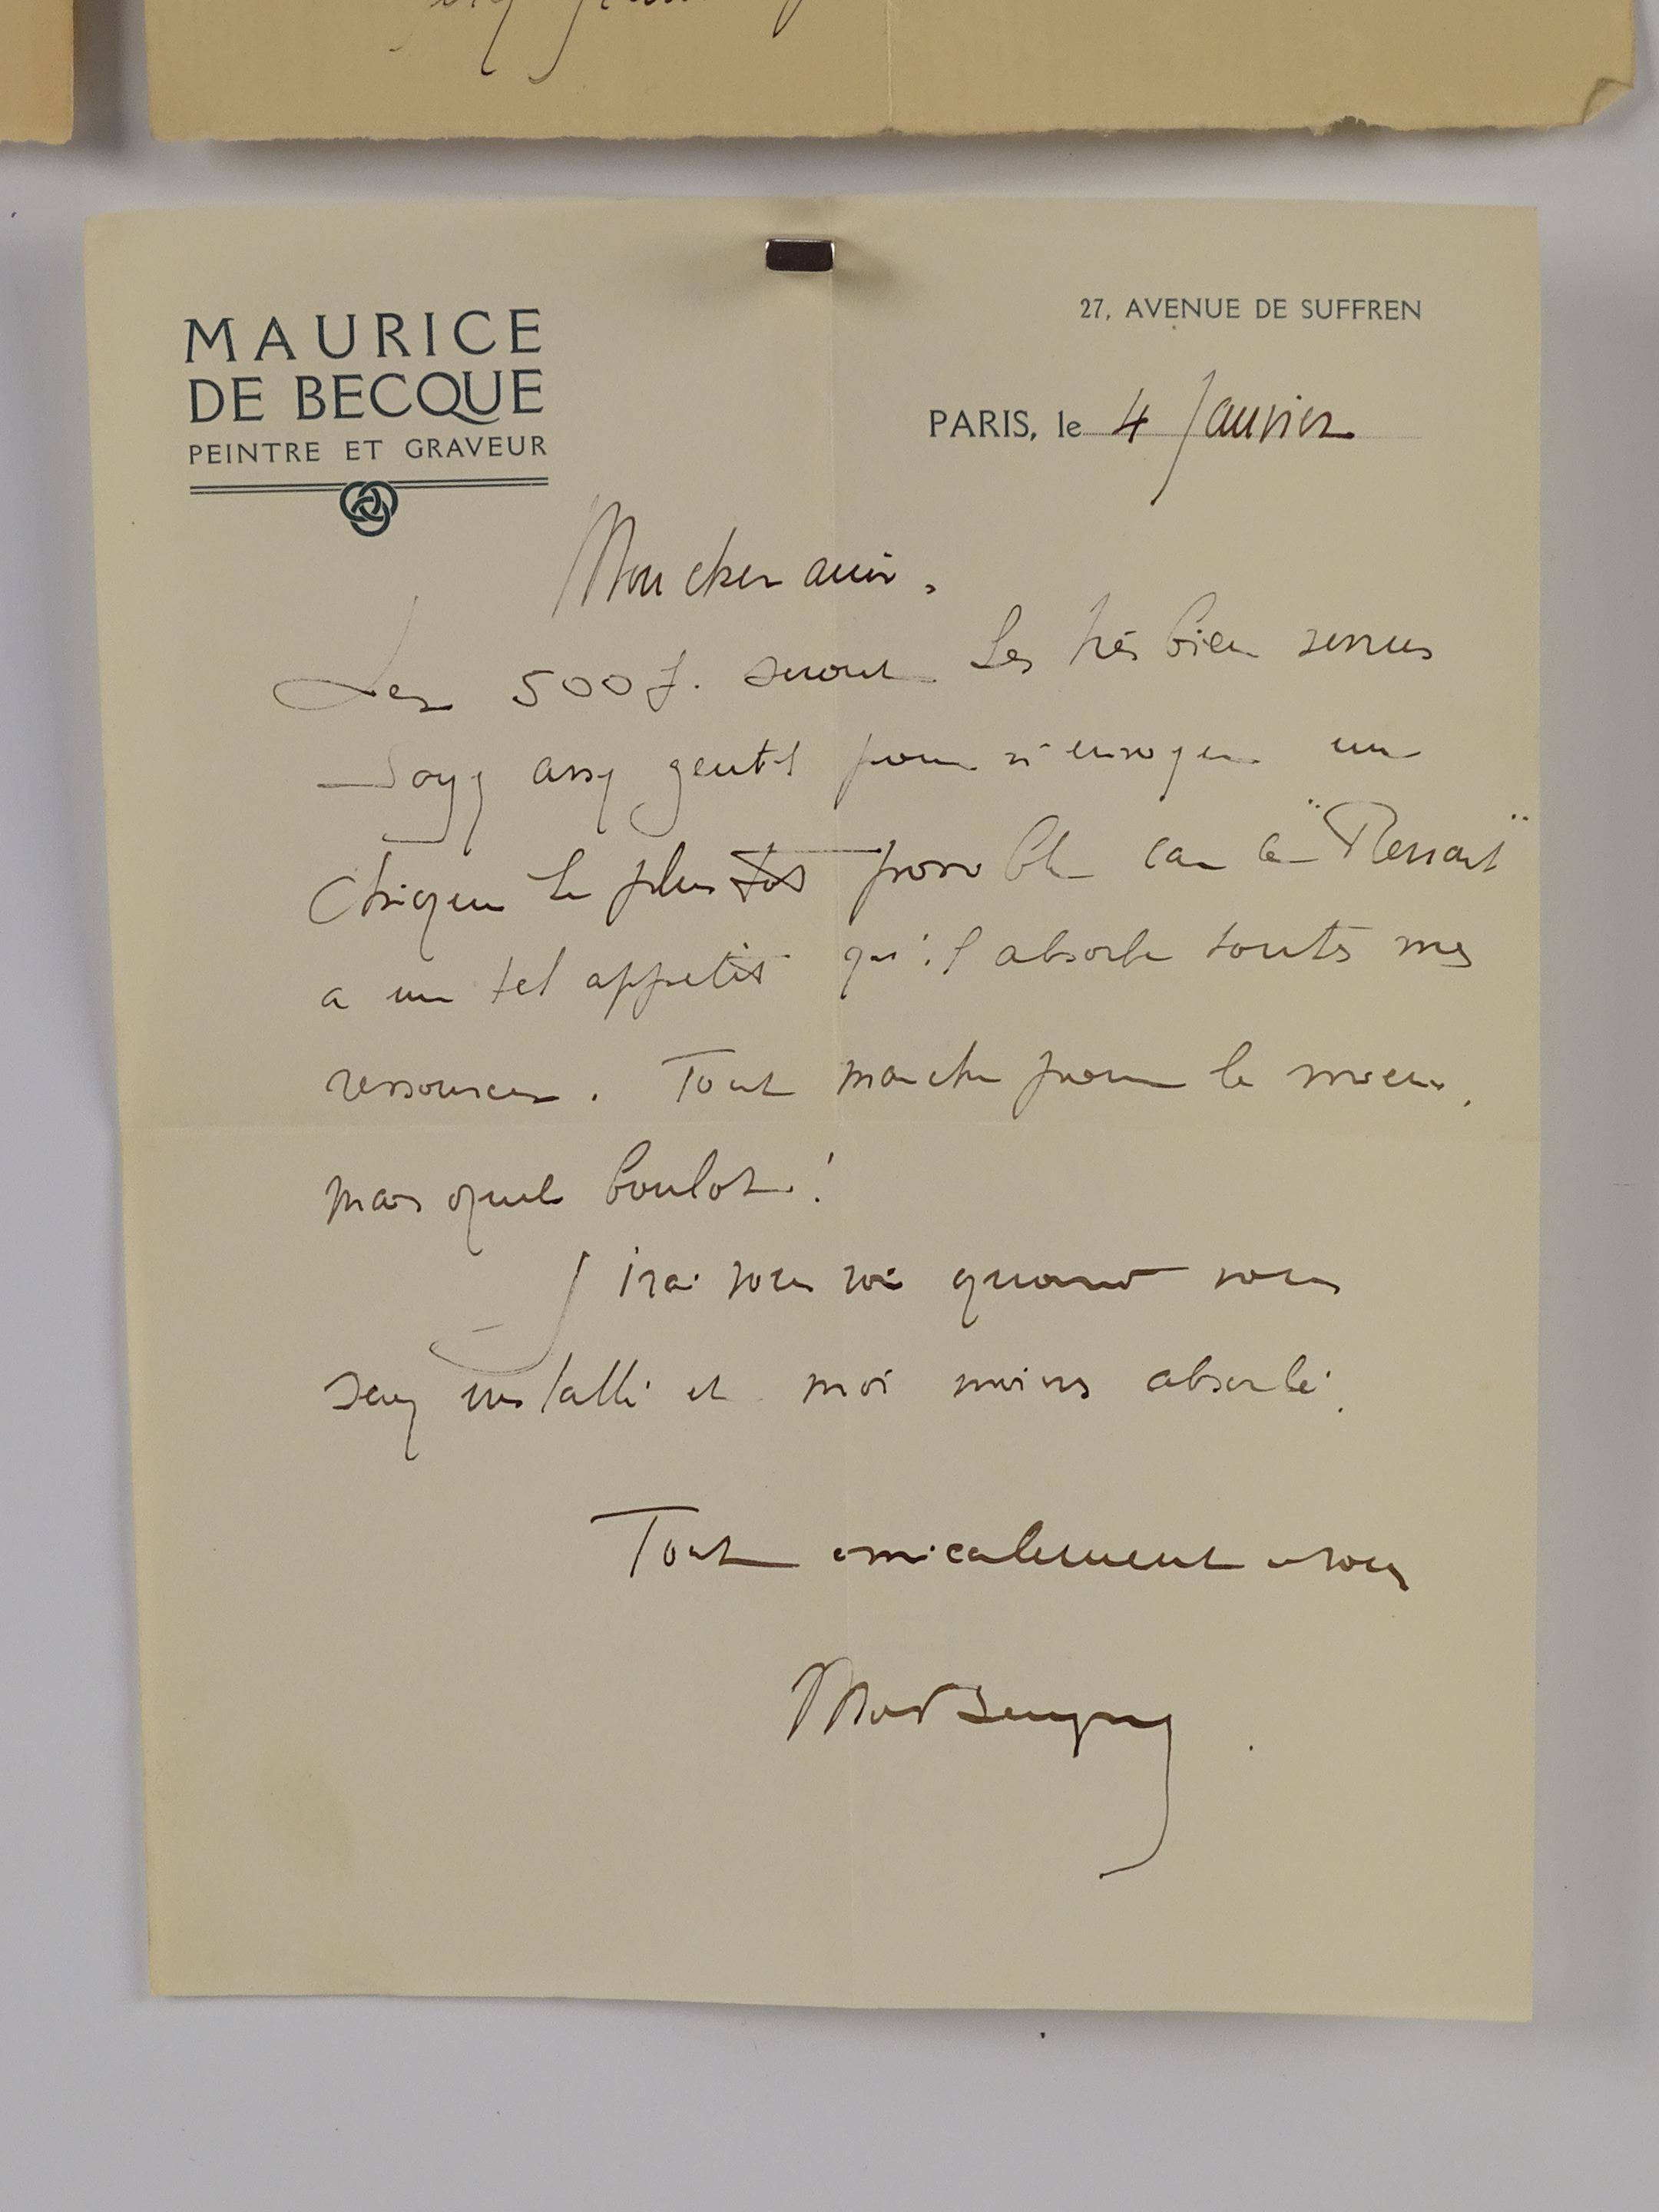 MAURICE
DE BECQUE
PEINTRE ET GRAVEUR
27, AVENUE DE SUFFREN
PARIS, le 4 Janvier
Mon cher ami,
Les 500 f. seront les très bien venus
Soyez assez gentil pour m'envoyer un
chèque le plus tôt possible car le "Ressort"
a un tel appétit qu'il absorbe toutes mes
ressources. Tout marche pour le mieux,
mais quel boulot !
J'irai vous voir quand vous
serez installé et moi moins absorbé.
Tout amicalement à vous